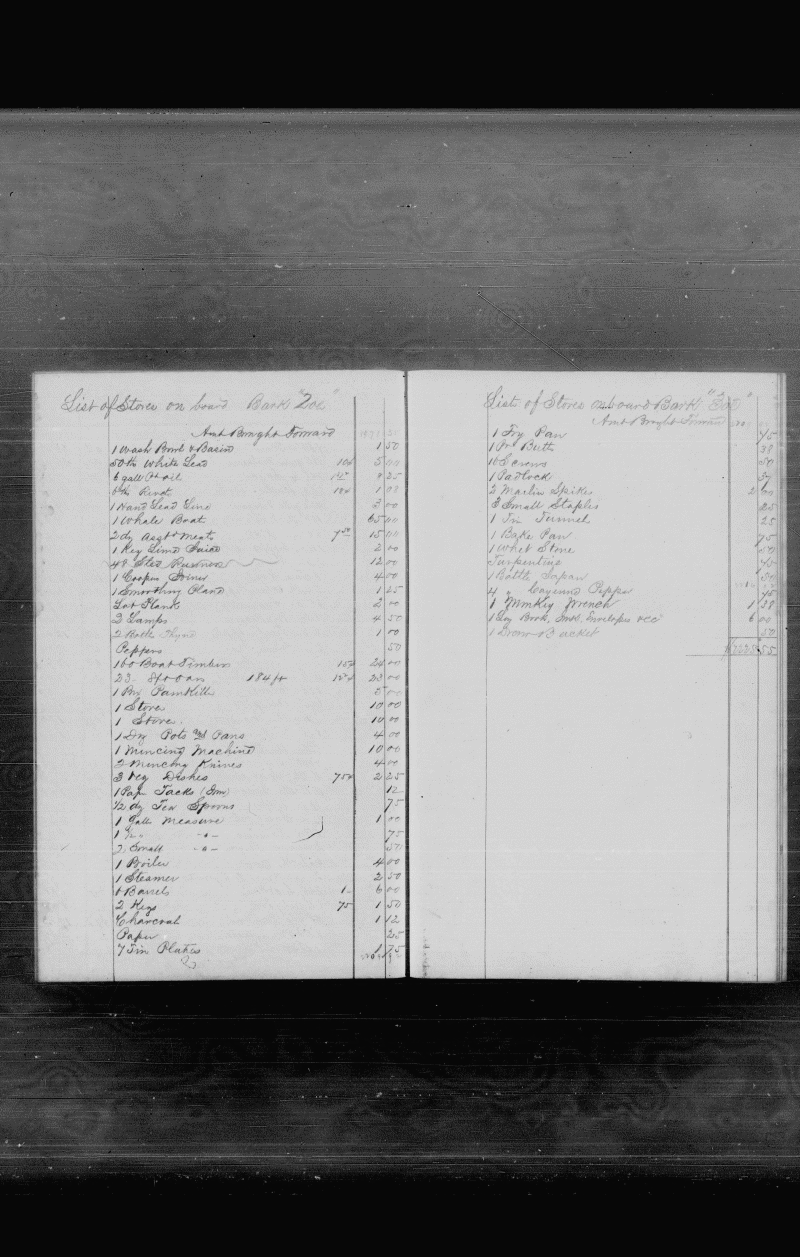 List of Stores on board Bark "Zoe"
Amt Brought Forward
1 Wash Bowl & Basin 1 50
50 lbs White Lead 10¢ 5 00
6 gall Pt oil
6 lbs Rivets 18¢ 1 08
1 Hand Lead Line 3 00
1 Whale Boat 65 00
2 dz Asst Meats 7 50 15 00
1 Keg Lime Juice 2 00
48 12 00
1 Coopers 4 00
1 Smoothing Plane 1 25
Lot Plank 2 00
3 Lamps 4 50
2 Bottles Thyme 1 00
Peppers 50
160 Boat Timbers 15¢ 24 00
23 184 ft 23 00
1 Box Painkiller 5 00
1 Stove 10 00
1 Stove 10 00
1 Dz Pots and Pans 4 00
1 Mincing Machine 10 00
2 Mincing Knives 4 00
3 Veg Dishes 75¢ 2 25
1 Pap Tacks 12
1/2 dz Tea Spoons 75
1 Gall Measure 1 00
1 1/2 " -"- 75
2 Small -"- 50
1 Boiler 4 00
1 Steamer 2 50
6 Barrels 1- 6 00
2 Kegs 75 1 50
Charcoal 1 12
Paper 25
7 Tin Plates 1 75
List of Stores on board Bark "Zoe"
Amt Brought Forward
1 Fry Pan 45
1 Pr Butts 38
Screws 50
1 Padlock
2 Marlin Spikes 2 00
3 Small Staples 25
1 Tin Tunnel 25
1 Bake Pan 75
1 Whet Stone 50
Turpentine 45
1 Bottle Japan 50
4 " Cayenne Pepper
1 Monkey Wrench 1 38
1 Log Book, Ink, Envelopes &cc 6 00
1 Draw Bucket 50